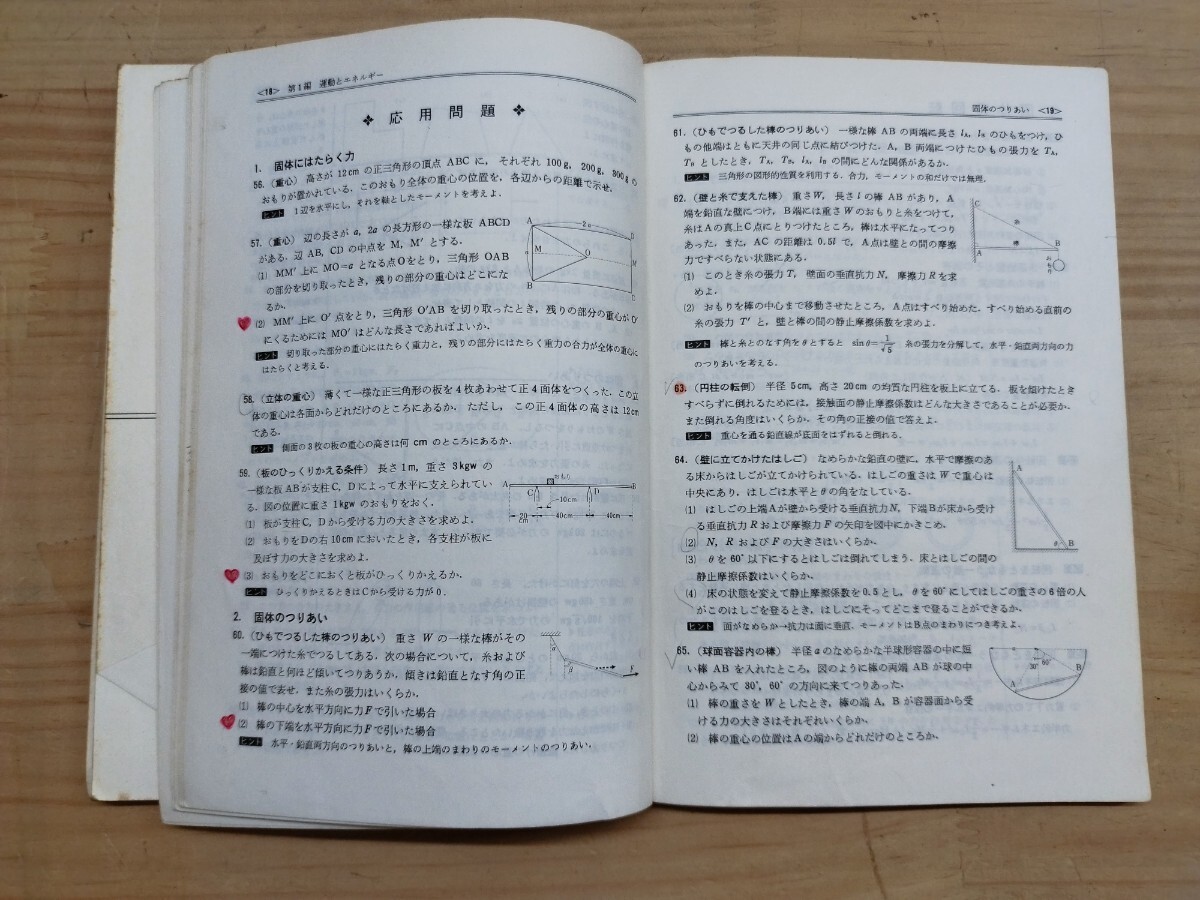 <18> 第1編 運動とエネルギー
❖ 応用問題 ❖
1. 固体にはたらく力
56.（重心） 高さが12cmの正三角形の頂点ABCに，それぞれ100g，200g，300gの
おもりが置かれている．このおもり全体の重心の位置を，各辺からの距離で示せ．
ヒント 1辺を水平にし，それを軸としたモーメントを考えよ．
57.（重心） 辺の長さがa，2aの長方形の一様な板ABCD
がある．辺AB，CDの中点をM，M′とする．
(1) MM′上にMO=aとなる点Oをとり，三角形OAB
の部分を切り取ったとき，残りの部分の重心はどこにな
るか．
(2) MM′上にO′点をとり，三角形O′ABを切り取ったとき，残りの部分の重心がO′
にくるためにはMO′はどんな長さであればよいか．
ヒント 切り取った部分の重心にはたらく重力と，残りの部分にはたらく重力の合力が全体の重心に
はたらくと考える．
A 2a D
M O M′
B C
58.（立体の重心） 薄くて一様な正三角形の板を4枚あわせて正4面体をつくった．この立
体の重心は各面からどれだけのところにあるか．ただし，この正4面体の高さは12cm
である．
ヒント 側面の3枚の板の重心の高さは何cmのところにあるか．
59.（板のひっくりかえる条件） 長さ1m，重さ3kgwの
一様な板ABが支柱C，Dによって水平に支えられてい
る．図の位置に重さ1kgwのおもりをおく．
(1) 板が支柱C，Dから受ける力の大きさを求めよ．
(2) おもりをDの右10cmにおいたとき，各支柱が板に
及ぼす力の大きさを求めよ．
(3) おもりをどこにおくと板がひっくりかえるか．
ヒント ひっくりかえるときはCから受ける力が0．
おもり
A B
C D
10cm
20cm 40cm 40cm
2. 固体のつりあい
60.（ひもでつるした棒のつりあい） 重さWの一様な棒がその
一端につけた糸でつるしてある．次の場合について，糸および
棒は鉛直と何ほど傾いてつりあうか．傾きは鉛直となす角の正
接の値で表せ．また糸の張力はいくらか．
(1) 棒の中心を水平方向に力Fで引いた場合
(2) 棒の下端を水平方向に力Fで引いた場合
ヒント 水平・鉛直両方向のつりあいと，棒の上端のまわりのモーメントのつりあい．
α
β F
固体のつりあい <19>
61.（ひもでつるした棒のつりあい） 一様な棒ABの両端に長さlA，lBのひもをつけ，ひ
もの他端はともに天井の同じ点に結びつけた．A，B両端につけたひもの張力をTA，
TBとしたとき，TA，TB，lA，lBの間にどんな関係があるか．
ヒント 三角形の図形的性質を利用する．合力，モーメントの和だけでは無理．
62.（壁と糸で支えた棒） 重さW，長さlの棒ABがあり，A
端を鉛直な壁につけ，B端には重さWのおもりと糸をつけて，
糸はAの真上C点にとりつけたところ，棒は水平になってつり
あった．また，ACの距離は0.5lで，A点は壁との間の摩擦
力ですべらない状態にある．
(1) このとき糸の張力T，壁面の垂直抗力N，摩擦力Rを求
めよ．
(2) おもりを棒の中心まで移動させたところ，A点はすべり始めた．すべり始める直前の
糸の張力T′と，壁と棒の間の静止摩擦係数を求めよ．
ヒント 棒と糸とのなす角をθとすると sinθ=1/√5 糸の張力を分解して，水平・鉛直両方向の力
のつりあいを考える．
C
糸
棒
A B
おもり
63.（円柱の転倒） 半径5cm，高さ20cmの均質な円柱を板上に立てる．板を傾けたとき
すべらずに倒れるためには，接触面の静止摩擦係数はどんな大きさであることが必要か．
また倒れる角度はいくらか．その角の正接の値で答えよ．
ヒント 重心を通る鉛直線が底面をはずれると倒れる．
64.（壁に立てかけたはしご） なめらかな鉛直の壁に，水平で摩擦のあ
る床からはしごが立てかけられている．はしごの重さはWで重心は
中央にあり，はしごは水平とθの角をなしている．
(1) はしごの上端Aが壁から受ける垂直抗力N，下端Bが床から受け
る垂直抗力Rおよび摩擦力Fの矢印を図中にかきこめ．
(2) N，RおよびFの大きさはいくらか．
(3) θを60°以下にするとはしごは倒れてしまう．床とはしごの間の
静止摩擦係数はいくらか．
(4) 床の状態を変えて静止摩擦係数を0.5とし，θを60°にしてはしごの重さの6倍の人
がこのはしごを登るとき，はしごにそってどこまで登ることができるか．
ヒント 面がなめらか→抗力は面に垂直．モーメントはB点のまわりにつき考えよ．
A
θ B
65.（球面容器内の棒） 半径aのなめらかな半球形容器の中に短
い棒ABを入れたところ，図のように棒の両端ABが球の中
心からみて30°，60°の方向に来てつりあった．
(1) 棒の重さをWとしたとき，棒の端A，Bが容器面から受
ける力の大きさはそれぞれいくらか．
(2) 棒の重心の位置はAの端からどれだけのところか．
30° 60°
A B